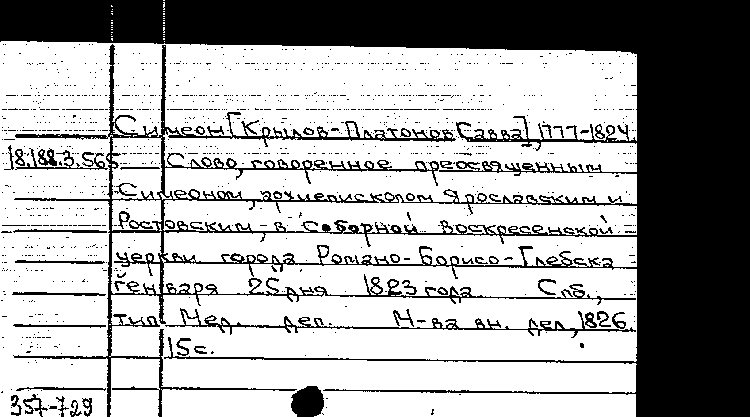 Симеон [Крылов-Платонов Савва], 1777-1824.
18.188.3.565 Слово, говоренное преосвященным
Симеоном, архиепископом Ярославским и
Ростовским, в соборной воскресенской
церкви города Романо-Борисо-Глебска
генваря 25 дня 1823 года. Спб.,
тип. Мед. деп. М-ва вн. дел, 1826.
15 с.
357-729